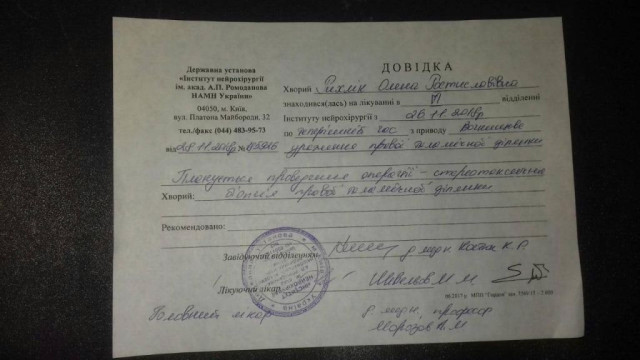 ДОВІДКА
Державна установа
«Інститут нейрохірургії
ім. акад. А.П. Ромоданова
НАМН України»
04050, м. Київ,
вул. Платона Майбороди, 32
тел./факс (044) 483-95-73
від 28.11.2018р №
Хворий Олена Ростиславівна
знаходився(лась) на лікуванні в відділенні
Інституту нейрохірургії з 26.11.2018р
по теперішній час з приводу Вогнищеве
ураження правої таламічної ділянки
Планується проведення операції - стереотаксична
Хворий: біопсія правої таламічної ділянки
Рекомендовано:
Завідуючий відділенням д.мед.н. Костюк К.Р.
Лікуючий лікар М.М
Головний лікар д.мед.н. професор